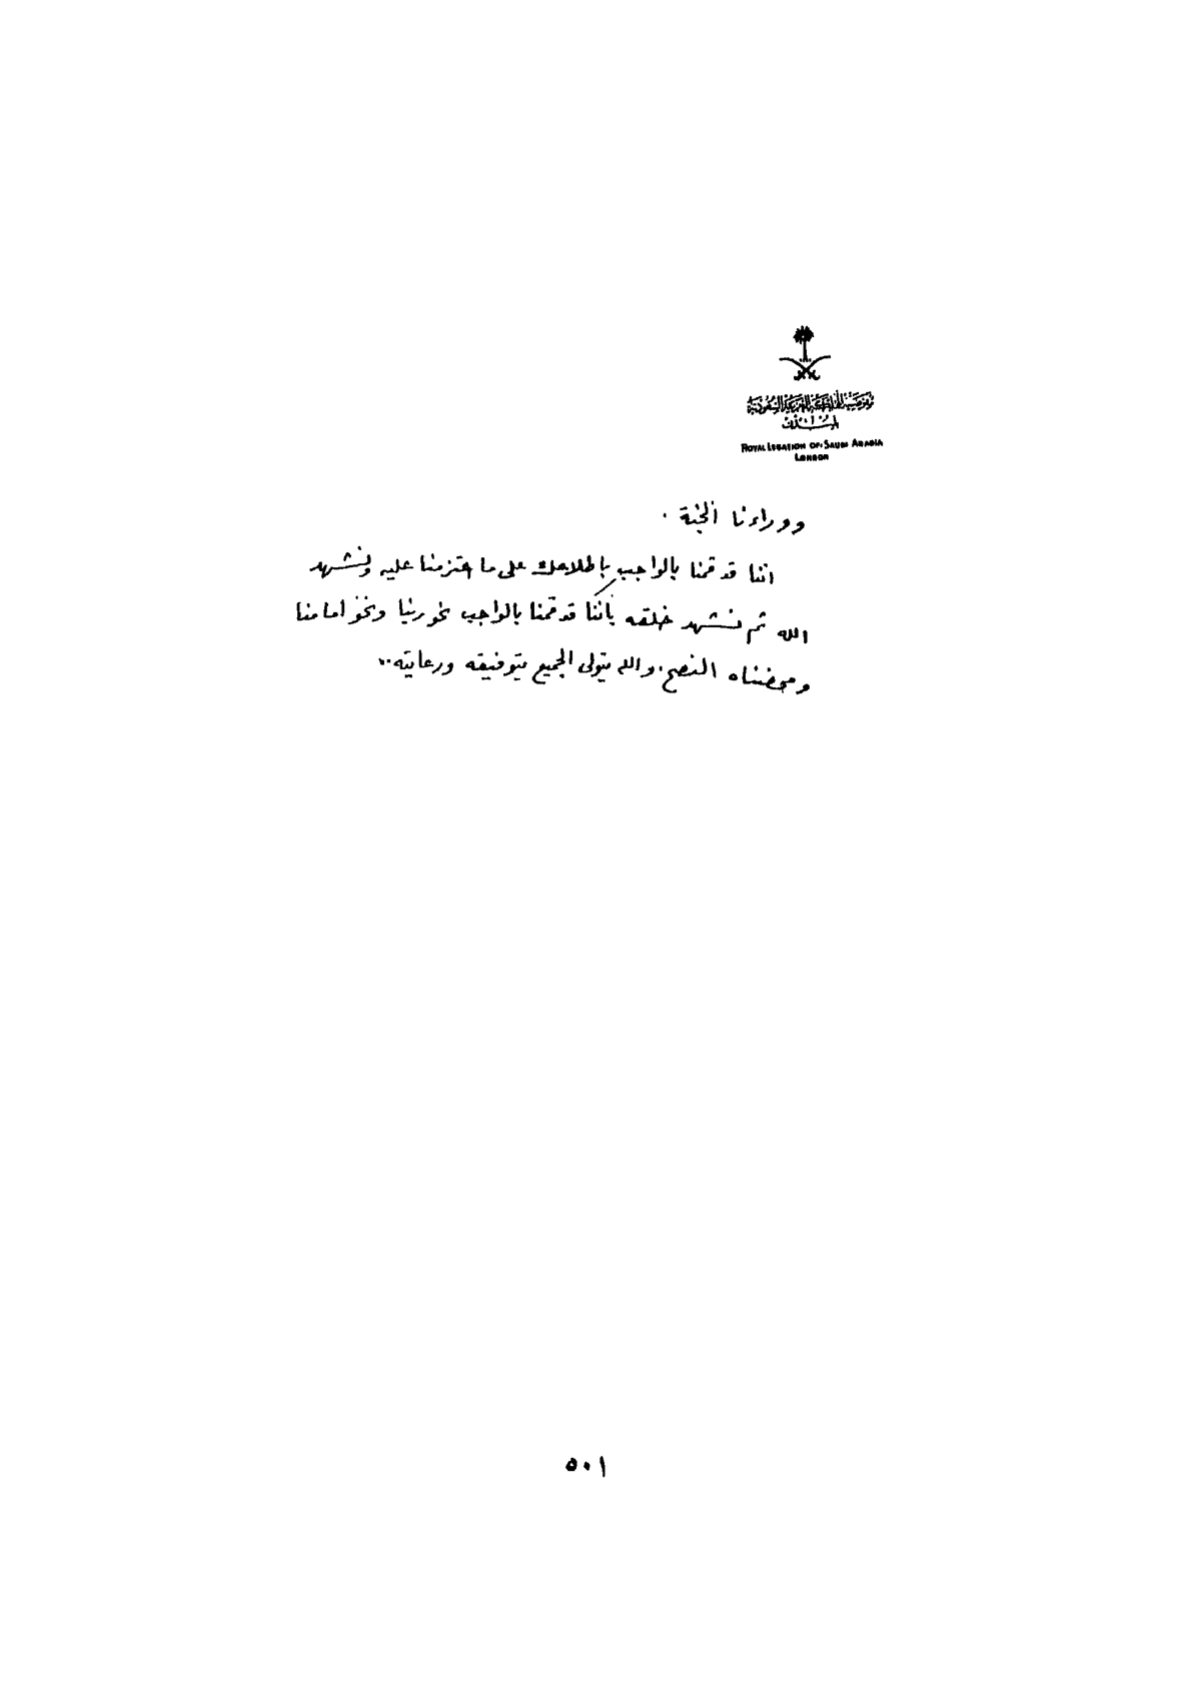 مفوضية المملكة العربية السعودية
بلندن
ROYAL LEGATION OF SAUDI ARABIA
LONDON
ووراءنا الجنة .
اننا قد قمنا بالواجب باطلاعك على ما اعتزمنا عليه ونشهد
الله ثم نشهد خلقه بأننا قد قمنا بالواجب نحو ربنا ونحو امامنا
ومحضناه النصح. والله يتولى الجميع بتوفيقه ورعايته..
٥٠١